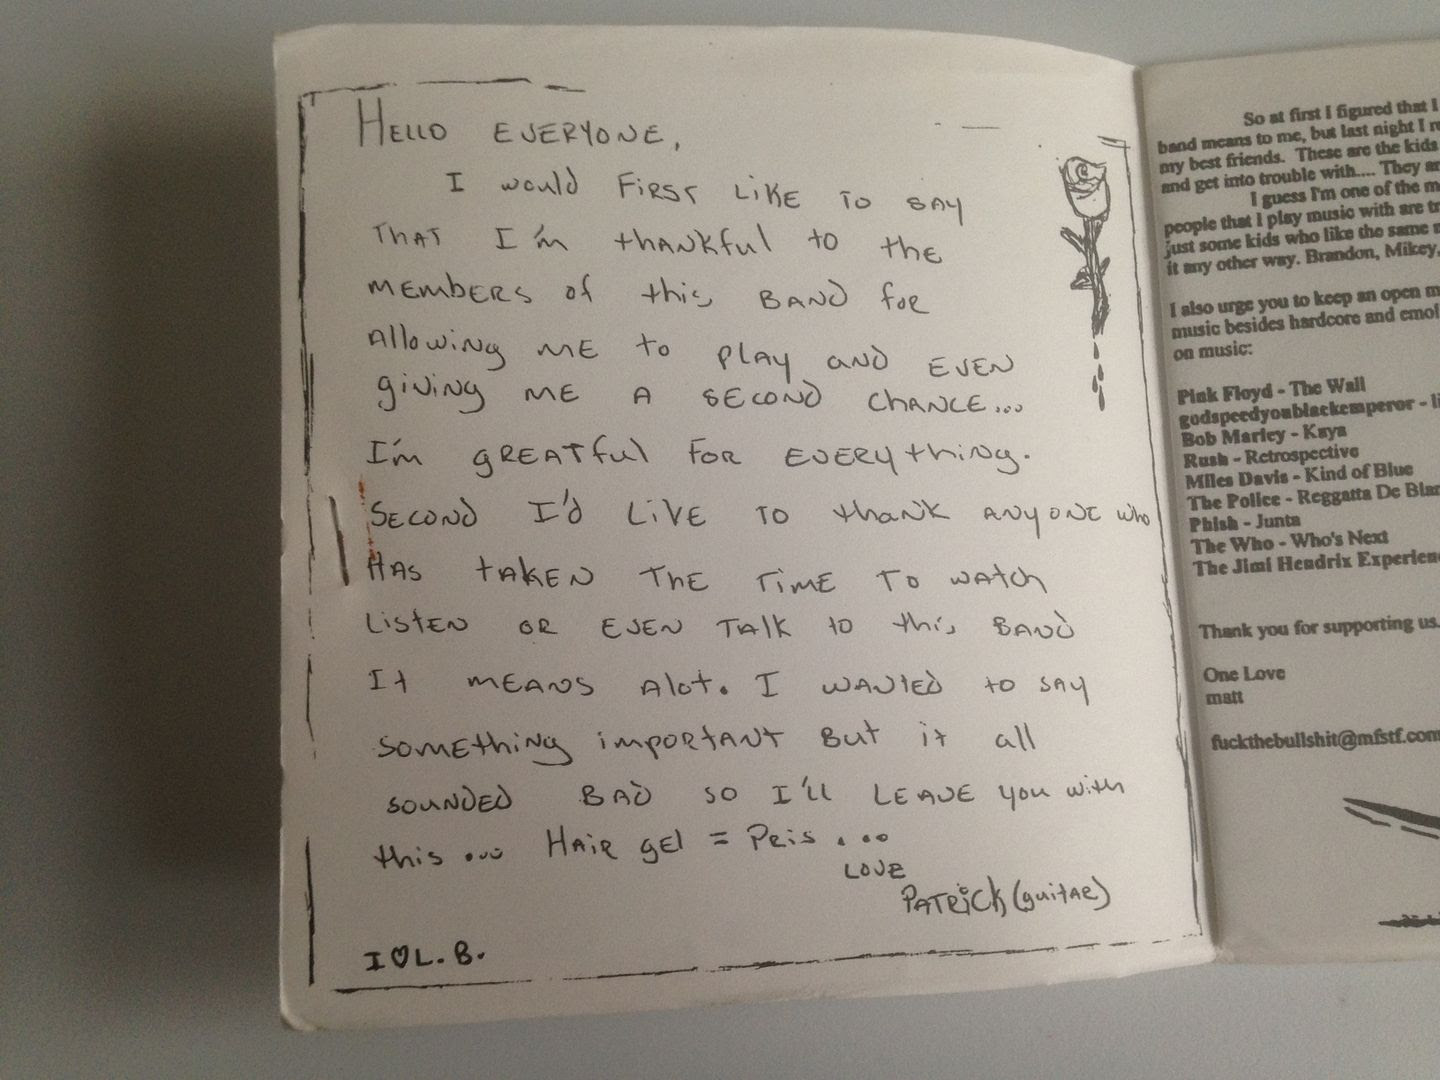 Hello everyone,
I would first like to say
that I'm thankful to the
members of this band for
allowing me to play and even
giving me a second chance...
I'm greatful for everything.
Second I'd like to thank anyone who
has taken the time to watch
listen or even talk to this band
It means alot. I wanted to say
something important but it all
sounded bad so I'll leave you with
this ... Hair gel = Pris ...
Love
Patrick (guitar)
I ♡ L.B.
So at first I figured that I
band means to me, but last night I
my best friends. These are the kids
and get into trouble with.... They
I guess I'm one of the
people that I play music with are
just some kids who like the same
it any other way. Brandon, Mikey,
I also urge you to keep an open
music besides hardcore and emo!
on music:
Pink Floyd - The Wall
godspeedyoublackemperor -
Bob Marley - Kaya
Rush - Retrospective
Miles Davis - Kind of Blue
The Police - Reggatta De
Phish - Junta
The Who - Who's Next
The Jimi Hendrix
Thank you for supporting us.
One Love
matt
fuckthebullshit@mfstf.com